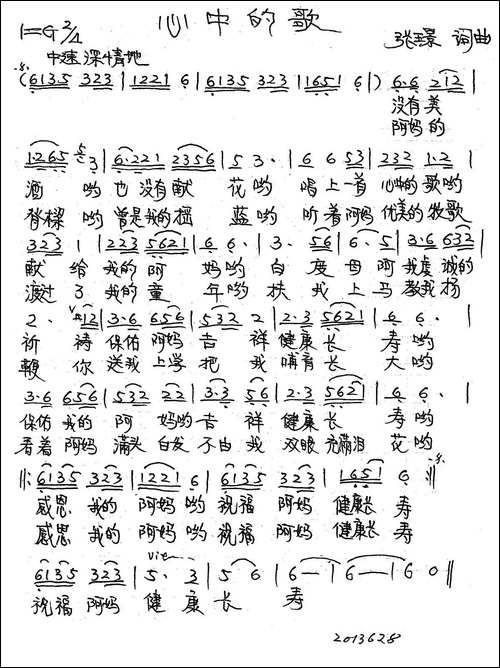 心中的歌
1=G 2/4
张璟 词曲
中速 深情地
(6135 323 | 1221 6 | 6135 323 | 1651 6 | 6 |) 6·6 212 |
没有美
阿妈的
1·265 3 | 6·221 2356 | 5 3· | 6 6 53 | 232 1·2 |
酒 哟 也没有献 花哟 唱上一首 心中的歌哟
脊梁 哟 曾是我的摇 蓝哟 听着阿妈 优美的牧歌
323 1 | 223 5621 | 6 6· | 3· 56 | 6· 5 | 3·6 632 |
献 给 我的 阿 妈哟 白 度 母 阿 我虔诚的
渡过 了 我的 童 年哟 扶 我 上 马 教我扬
2· 12 | 3·6 656 | 532 2 | 2·3 5621 | 6 6· |
祈 祷 保佑 阿妈 吉 祥 健康 长 寿哟
鞭 你 送我 上学 把 我 哺育 长 大哟
3·6 656 | 532 22 | 3·3 56 | 2·3 5621 | 6 6· |
保佑 我的 阿 妈哟 吉 祥 健康 长 寿哟
看着 阿妈 满头 白发 不由 我 双眼 充满泪 花哟
‖: 6135 323 | 1221 6 | 6135 323 | 1651 6 :‖
感恩 我的 阿妈 哟 祝福 阿妈 健康长 寿
感恩 我的 阿妈 哟 祝福 阿妈 健康长 寿
6135 323 | 5· 3 | 5 6 | 6 — | 6 — | 6 0 ‖
祝福 阿妈 健 康 长 寿
2013628